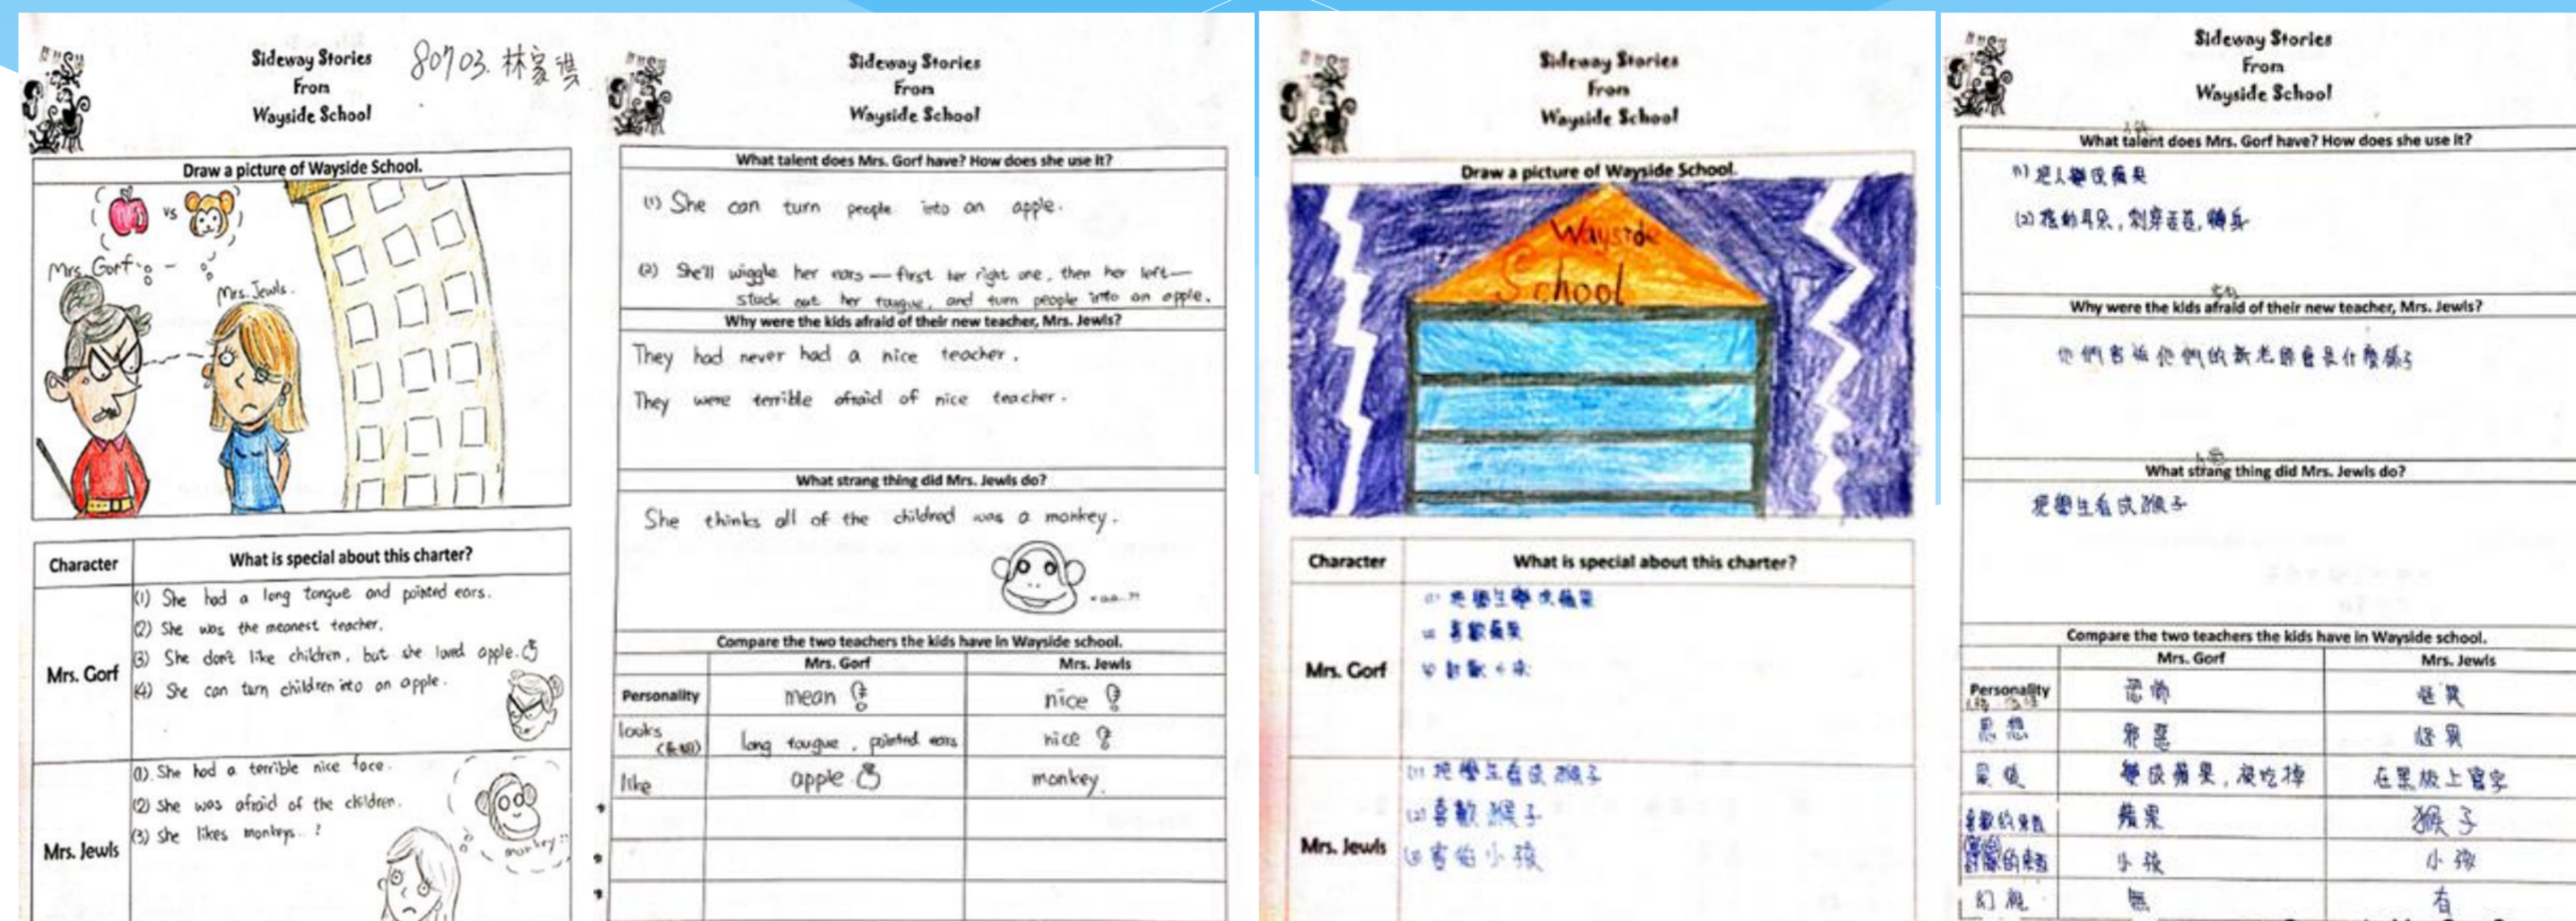 Sideway Stories
From
Wayside School
80703. 林家
Draw a picture of Wayside School.
vs
Mrs. Gorf
Mrs. Jewls.
Character
What is special about this charter?
Mrs. Gorf
(1) She had a long tongue and pointed ears.
(2) She was the meanest teacher.
(3) She don't like children, but she loved apple.
(4) She can turn children into an apple.
Mrs. Jewls
(1). She had a terrible nice face.
(2) she was afraid of the children.
(3) she likes monkeys..?
monkey??
Sideway Stories
From
Wayside School
What talent does Mrs. Gorf have? How does she use it?
(1) She can turn people into an apple.
(2) She'll wiggle her ears — first her right one, then her left —
stuck out her tougue, and turn people into an apple.
Why were the kids afraid of their new teacher, Mrs. Jewls?
They had never had a nice teacher.
They were terrible afraid of nice teacher.
What strang thing did Mrs. Jewls do?
She thinks all of the childred was a monkey.
Compare the two teachers the kids have in Wayside school.
Mrs. Gorf
Mrs. Jewls
Personality
mean
nice
looks
(長相)
long tougue, pointed ears
nice
like
apple
monkey.
Sideway Stories
From
Wayside School
Draw a picture of Wayside School.
Wayside
School
Character
What is special about this charter?
Mrs. Gorf
(1) 把學生變成蘋果
(2) 喜歡蘋果
(3) 討厭小孩
Mrs. Jewls
(1) 把學生看成猴子
(2) 喜歡猴子
(3) 害怕小孩
Sideway Stories
From
Wayside School
What talent does Mrs. Gorf have? How does she use it?
(1) 把人變成蘋果
(2) 耳朵,
Why were the kids afraid of their new teacher, Mrs. Jewls?
他們害怕他們的新老師會是什麼樣子
What strang thing did Mrs. Jewls do?
把學生看成猴子
Compare the two teachers the kids have in Wayside school.
Mrs. Gorf
Mrs. Jewls
Personality
恐怖
怪異
思想
邪惡
怪異
最後
變成蘋果,被吃掉
在黑板上寫字
喜歡的東西
蘋果
猴子
討厭的東西
小孩
小孩
幻想
無
有